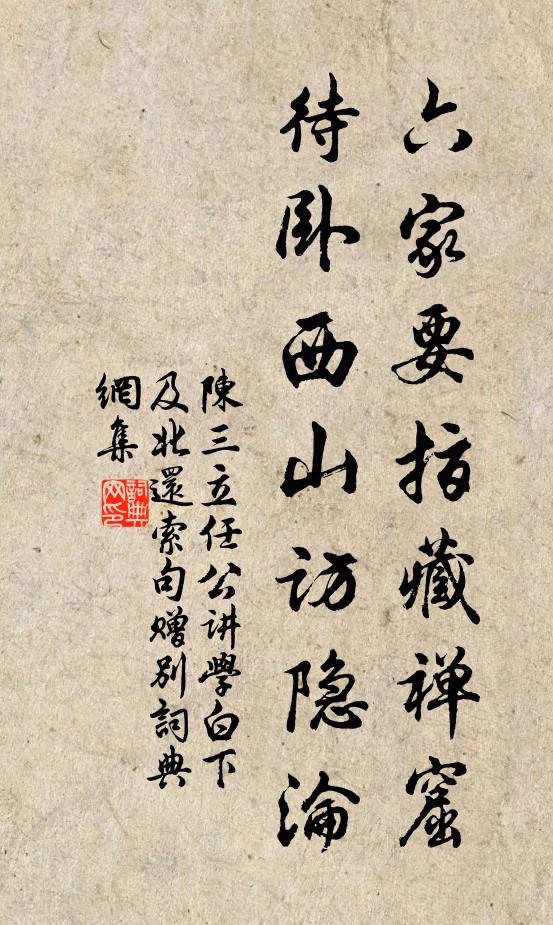 六家要指藏禅窟
待卧西山访隐沦
陳三立任公讲學白下
及北還索句赠别詞典
網集
詞典网印